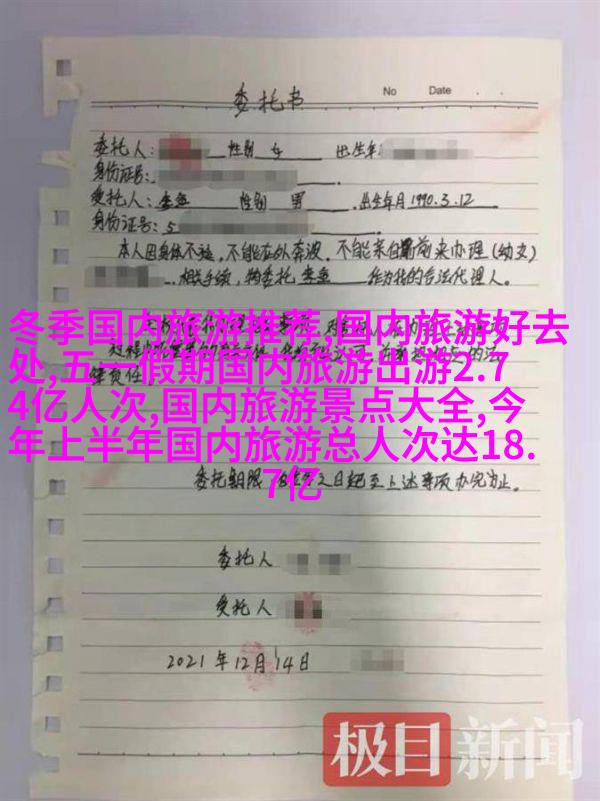 No Date
委托书
委托人: 性别 女 出生年
身份证号:
受托人: 李 性别 男 .出生年月 1990.3.12
身份证号: 5
本人因身体不适,不能在外奔波,不能亲自前来办理(幼文)
相关手续,特委托 李 作为我的合法代理人。
冬季国内旅游推荐,国内旅游好去
处,五一假期国内旅游出游2.7
4亿人次,国内旅游景点大全,今
年上半年国内旅游总人次达18.
7亿
律责任
委托期限 之日起至上述事项办完为止。
委托人
受托人
2021年12月14日
极目新闻